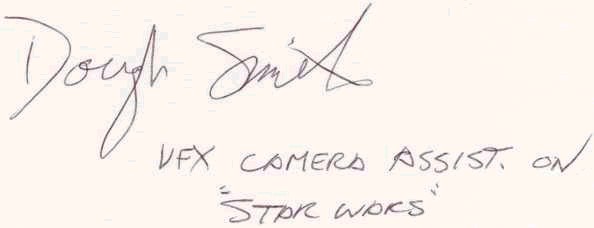 Doug Smith
VFX CAMERA ASSIST. ON
"STAR WARS"